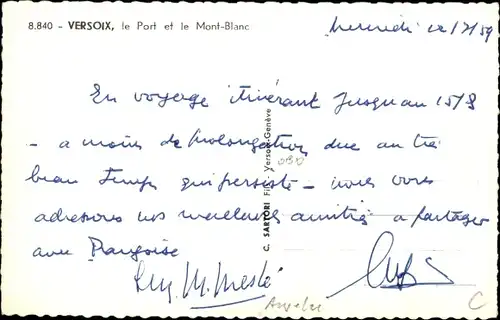 8.840 - VERSOIX, le Port et le Mont-Blanc
Mercredi 12/8/59
En voyage itinérant jusqu'au 15/8
- a moins de prolongation due au très
beau temps qui persiste - nous vous
adressons nos meilleures amitiés a partager
avec Françoise
C. SARTORI Fils - Versoix-Genève
C